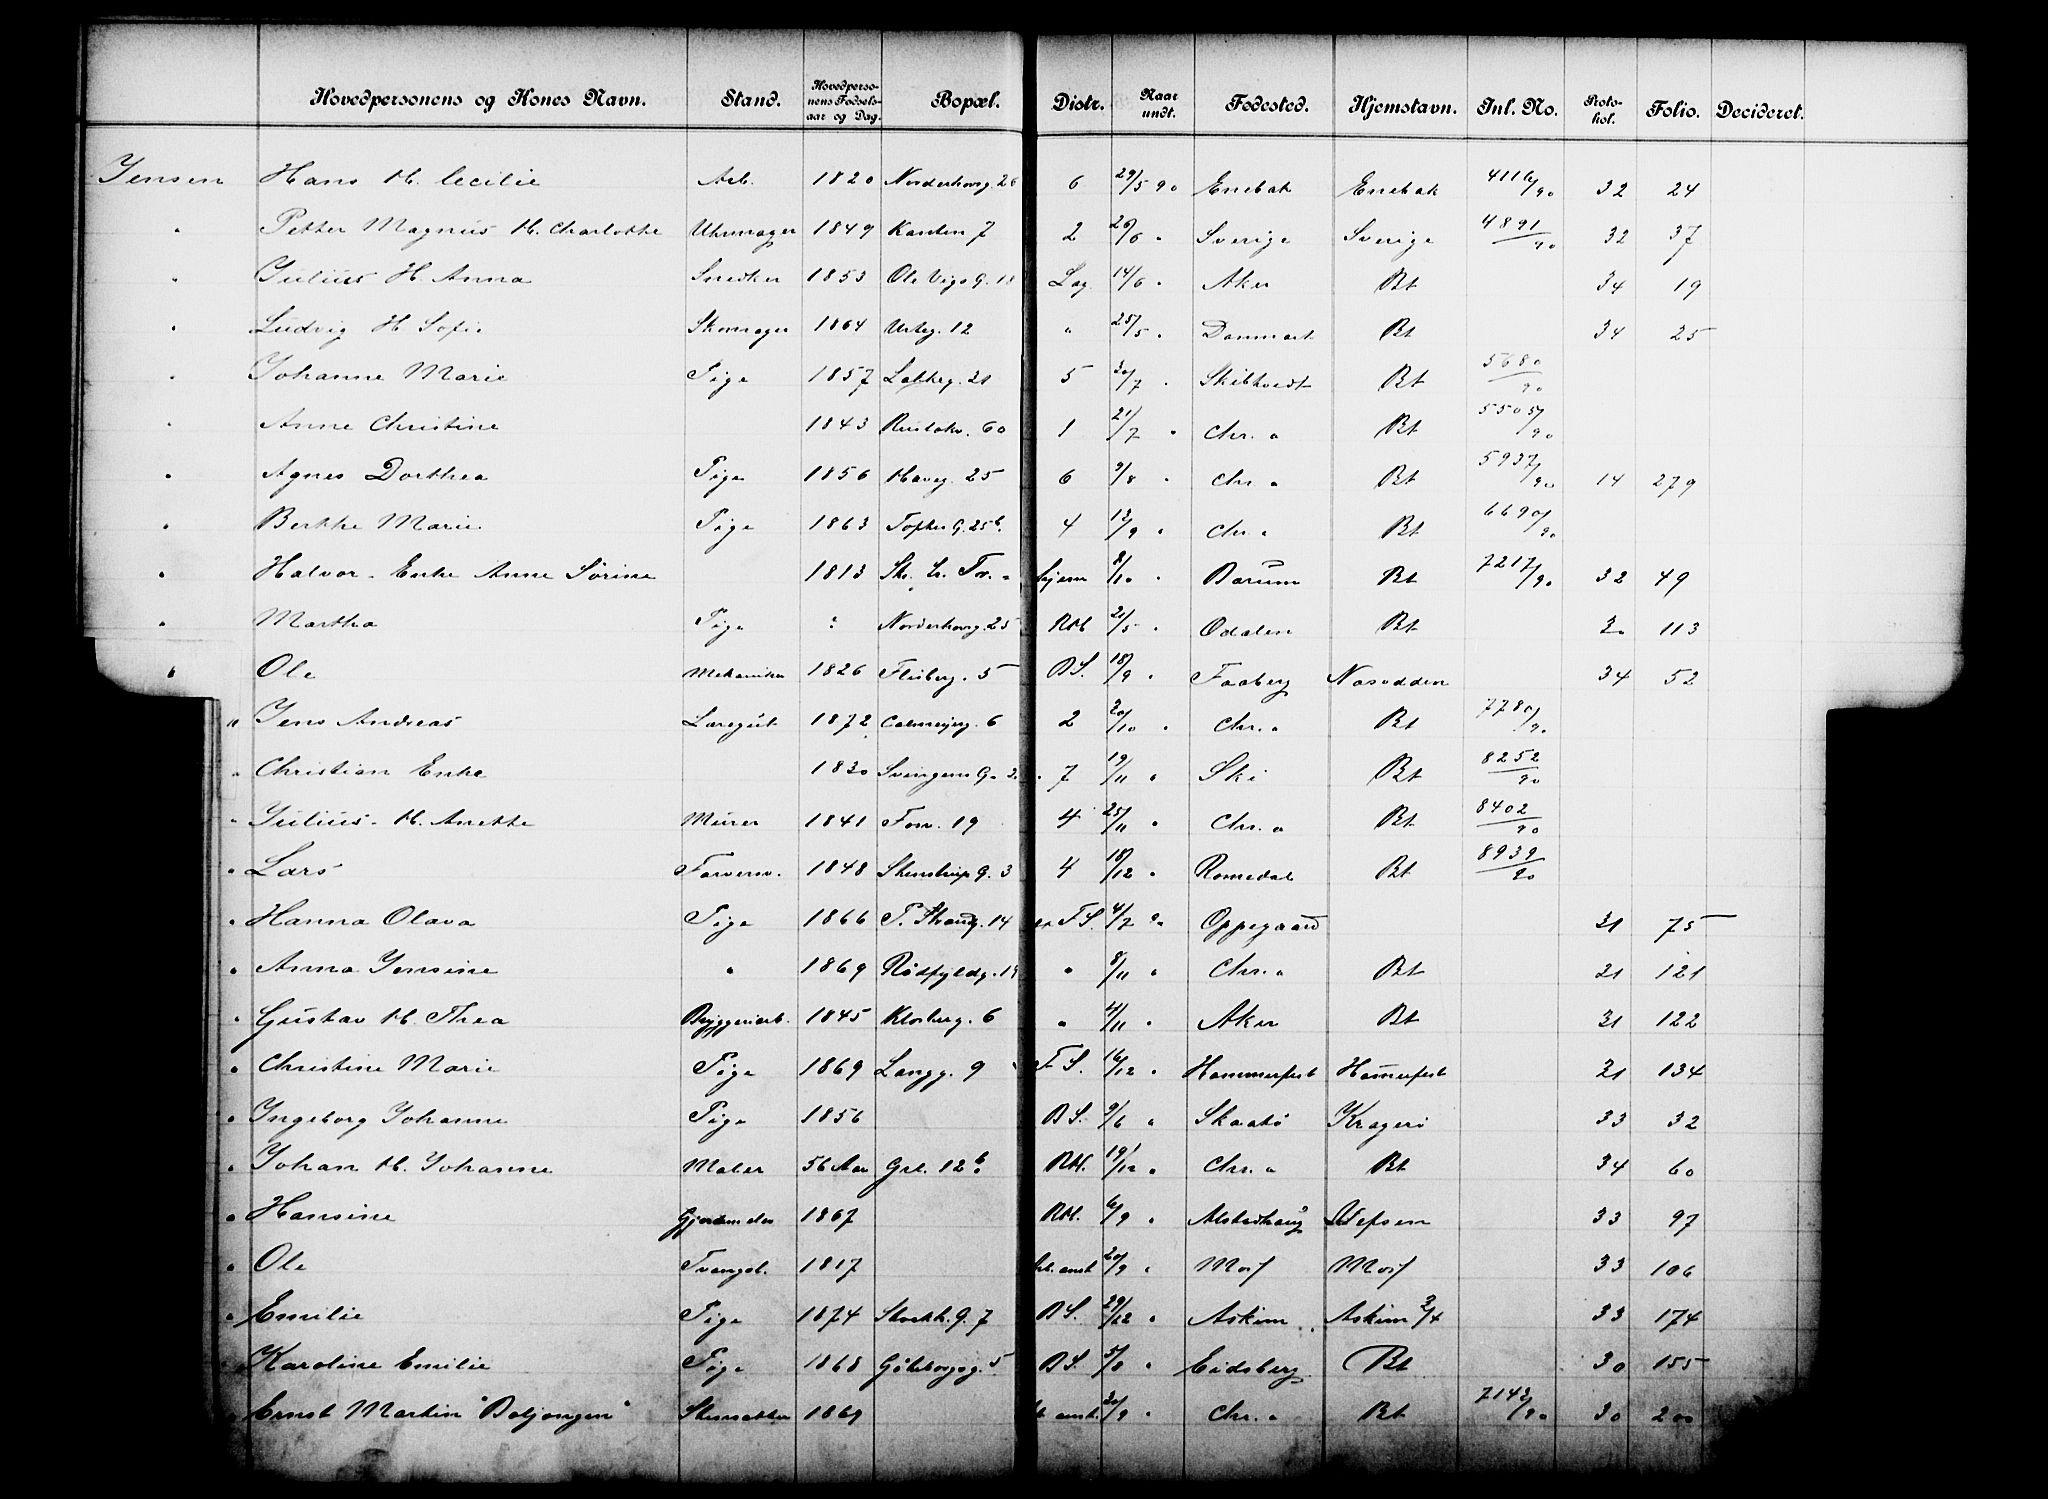 Hovedpersonens og Kones Navn. Stand. Hovedpersonens Fødselsaar og Dag. Bopæl. Distr. Naar undt. Fødested. Hjemstavn. Jnl. No. Protokol. Folio. Decideret.
Jensen Hans H. Cecilie Arb. 1820 Norderhovg. 26 6 29/5 90 Enebak Enebak 4116/90 32 24
" Petter Magnus H. Charlotte Uhrmager 1849 Kanten 7 2 26/6 " Sverige Sverige 4891/90 32 37
" Julius H Anna Snedker 1853 Ole Vigs G. 18 Lag 14/6 " Aker Bt 34 19
" Ludvig H Sofie Skomager 1864 Urteg. 12 " 25/5 " Danmark Bt 34 25
" Johanne Marie Pige 1857 21 5 30/7 " Skibtvedt Bt 5680/90
" Anne Christine 1843 Ruselökv. 60 1 21/7 " Chr.a Bt 5505/90
" Agnes Dorthea Pige 1856 Haveg. 25 6 9/8 " Chr.a Bt 5937/90 14 279
" Berthe Marie Pige 1863 Toftes G. 25b. 4 12/9 " Chr.a Bt 6690/90
" Halvor. Enke Anne Sørine 1813 8/10 " Bærum Bt 7217/90 32 49
" Martha Pige : Norderhovg. 25 RH 21/5 " Odalen Bt 30 113
" Ole Mekaniker 1826 Flisberg. 5 BS. 18/9 " Faaberg Næsodden 34 52
" Jens Andreas Læregut 1872 Calmeyerg. 6 2 20/10 " Chr.a Bt 7780/90
" Christian Enke 1830 Svingens G. 7 19/11 " Ski Bt 8252/90
" Julius. H. Anette Murer 1841 Forv. 19 4 25/11 " Chr.a Bt 8402/90
" Lars Farversv. 1848 Stenstrup G. 3 4 18/12 " Romedal Bt 8939/90
" Hanna Olava Pige 1866 T. Strandg. 14 FS. 4/7 90 Oppegaard 31 75
" Anna Jensine " 1869 Rødfyldg. 19 " 8/11 " Chr.a Bt 21 121
" Gustav H. Thea Bryggeriarb. 1845 Klosterg. 6 " 11/11 " Aker Bt 31 122
" Christine Marie Pige 1869 Langg. 9 FS. 16/12 " Hammerfest Hamerfest 21 134
" Ingeborg Johanne Pige 1856 BS. 9/6 " Skaatø Kragerø 33 32
" Johan H. Johanne Maler 56 Aar Grl. 12b RH. 19/12 " Chr.a Bt 34 60
" Hansine 1867 RH. 6/9 " Alstadhaug Vefsen 33 97
" Ole Tvangsl. 1817 20/9 " Mois Mois 33 106
" Emilie Pige 1874 Storkk. G. 7 BS. 29/12 " Askim Askim 2/4 33 174
" Karoline Emilie Pige 1868 Göteborgsg. 5 BS. 5/8 " Eidsberg Bt 30 155
" Ernst Martin "Boljongen" 1869 30/9 " Chr.a Bt 7142/90 30 200